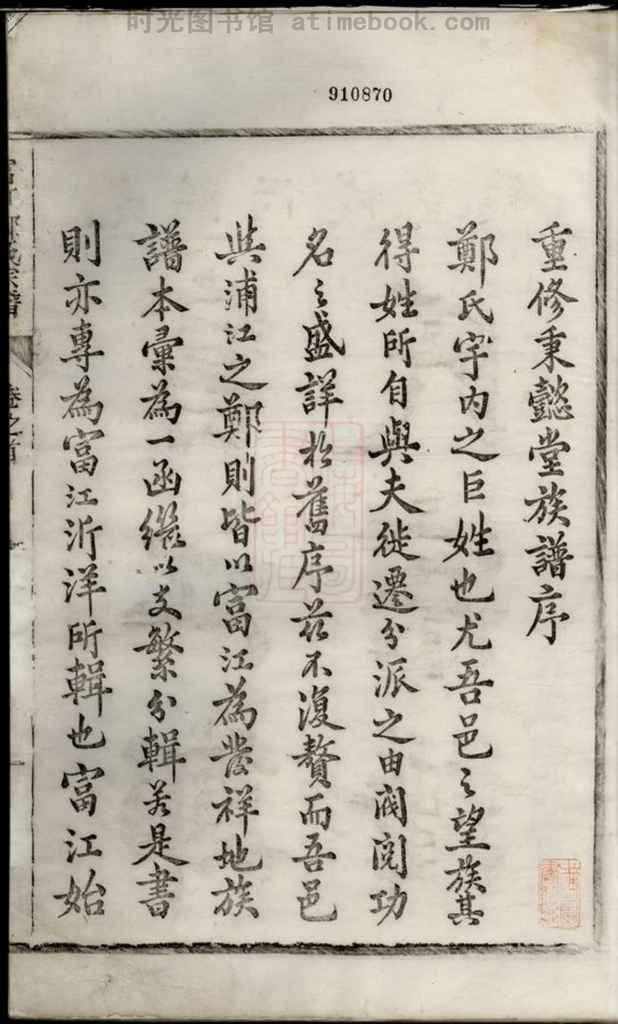 时光图书馆 atimebook.com
910870
重修秉懿堂族譜序
鄭氏宇內之巨姓也尤吾邑之望族其
得姓所自與夫徙遷分派之由閥閱功
名之盛詳於舊序茲不復贅而吾邑
與浦江之鄭則皆以富江為發祥地族
譜本彙為一函繼以支繁分輯若是書
則亦專為富江沂洋所輯也富江始
卷之首